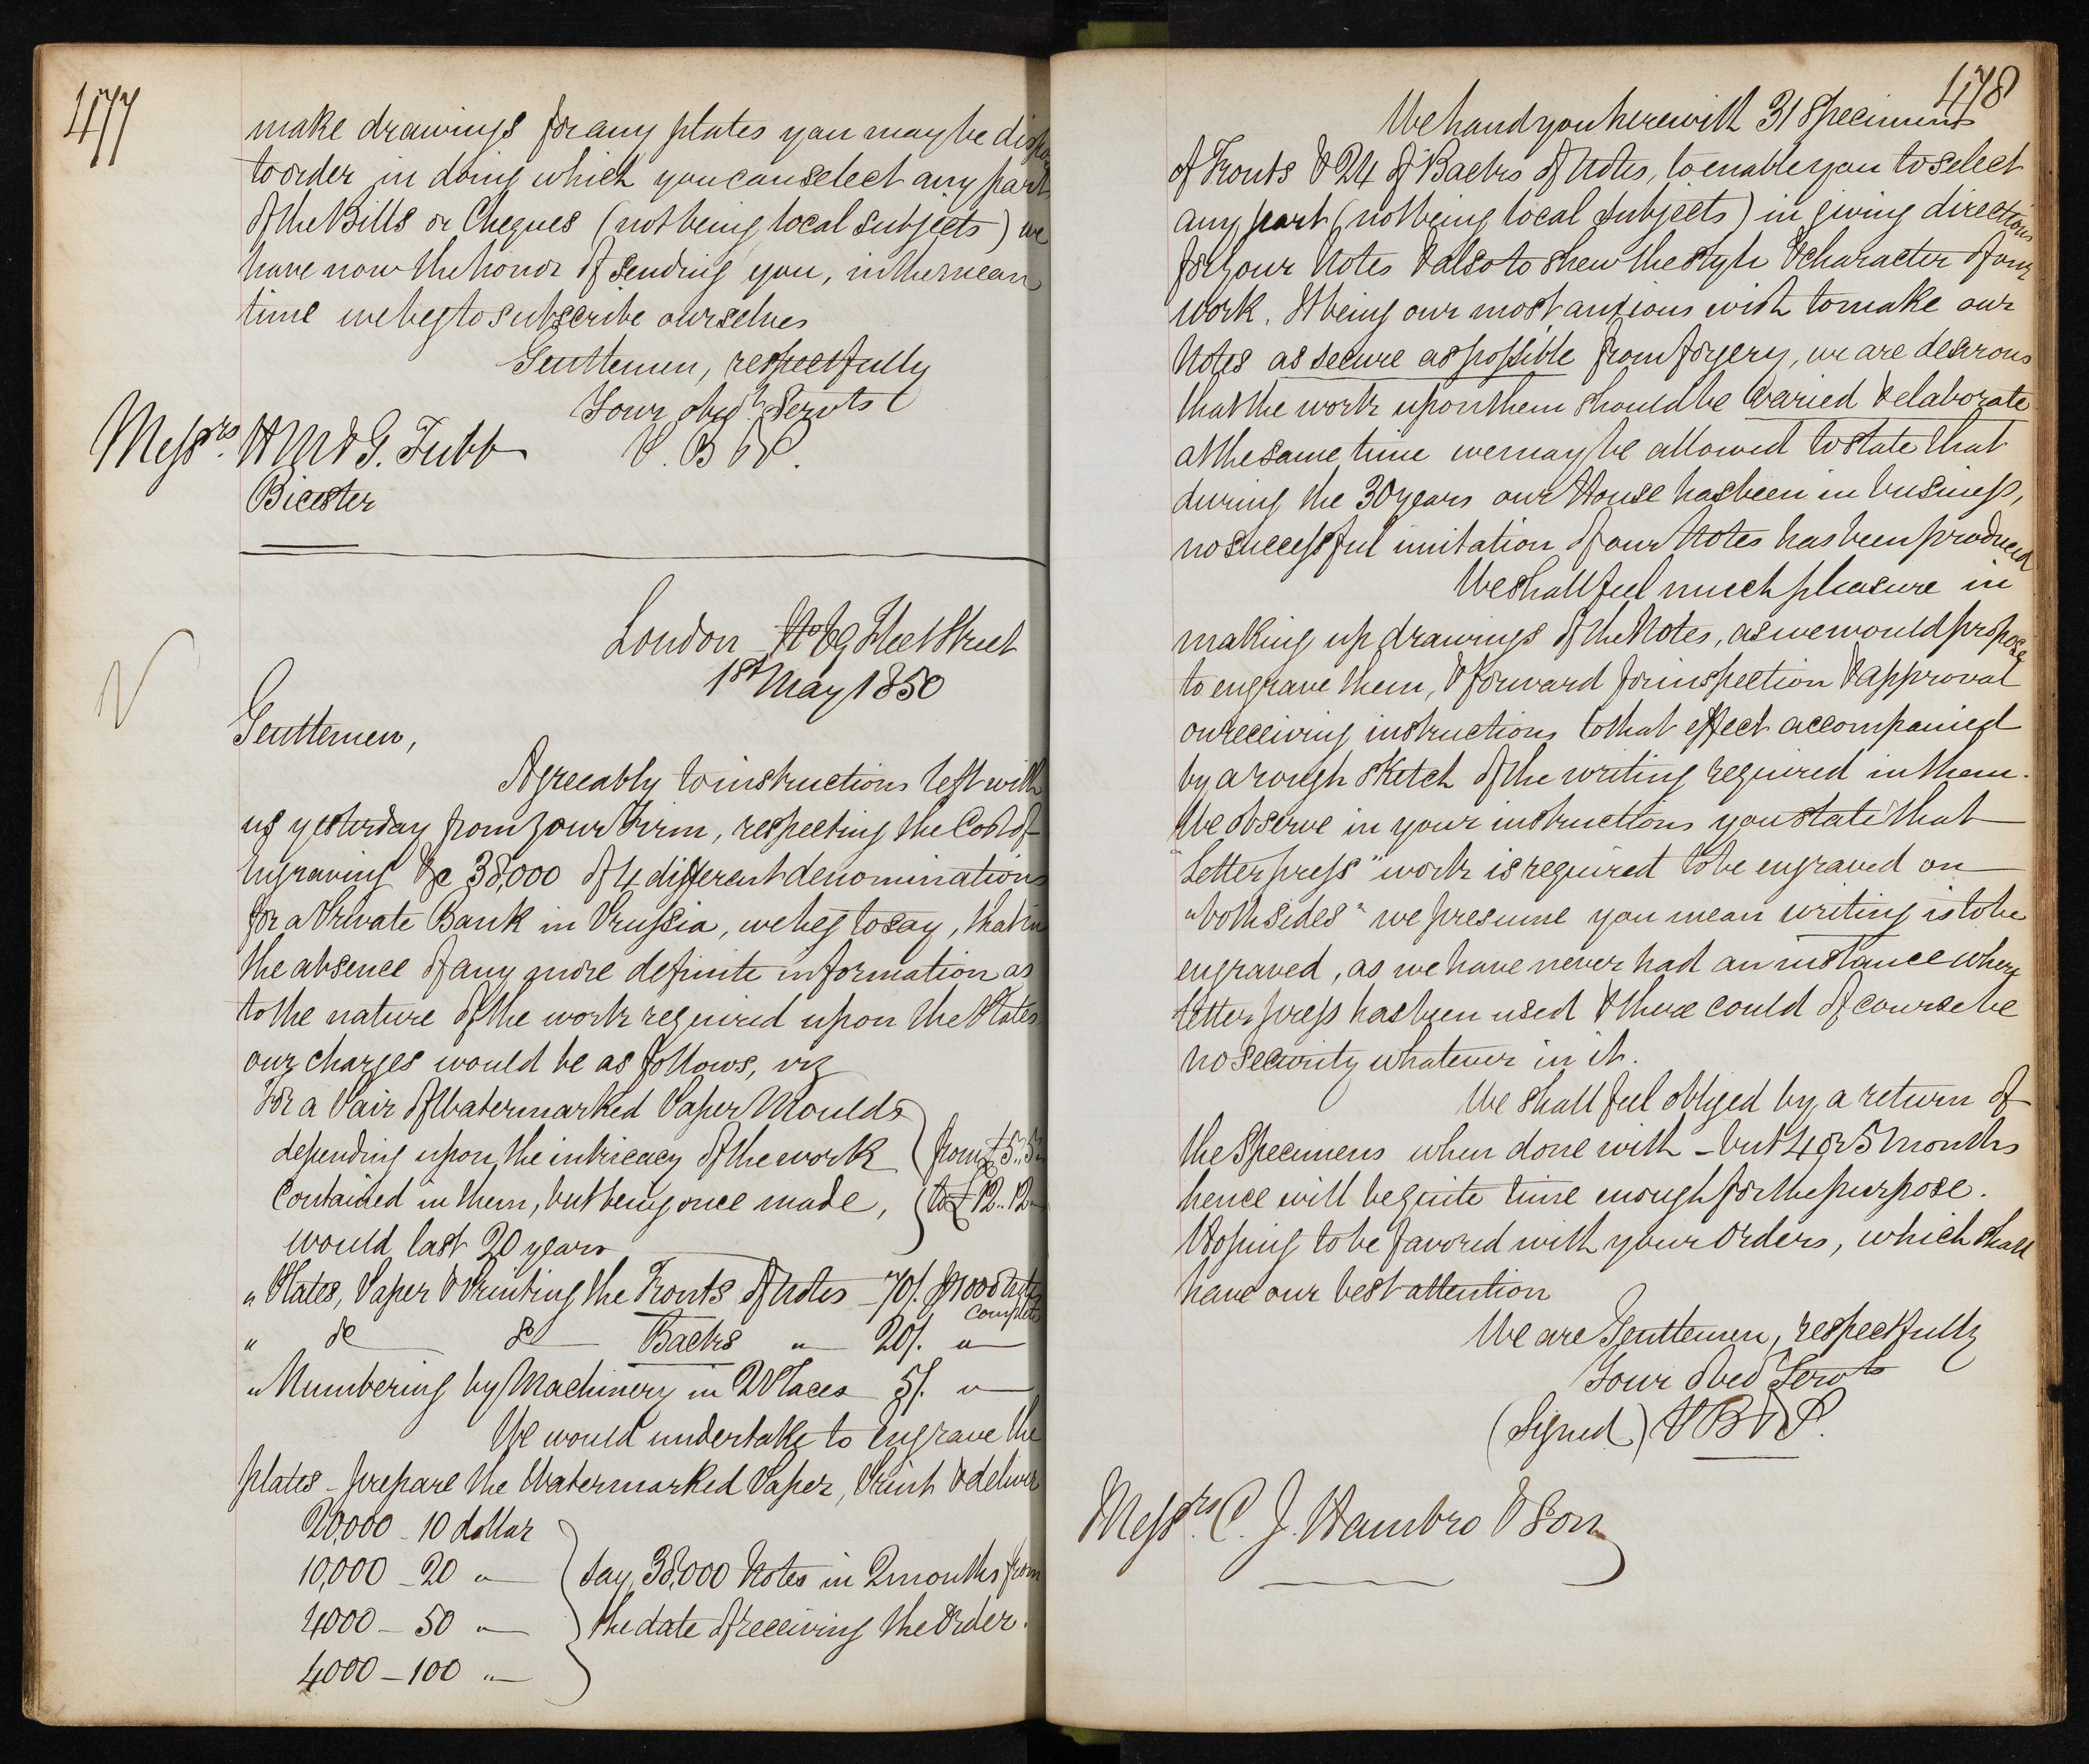 477
make drawings for any plates you may be dispo
to order in doing which you can select any part
of the Bills or Cheques (not being local subjects) we
have now the honor of sending you, in the mean
time we beg to subscribe ourselves
Gentlemen, respectfully
Your obedt Servts
P. B & P.
Messrs H M & G. Tubb
Bicester
London No 69 Fleet Street
1st May 1850
Gentlemen,
Agreeably to instructions left with
us yesterday from your Firm, respecting the Cost of
Engraving &c 38,000 of 4 different denominations
for a Private Bank in Prussia, we beg to say, that in
the absence of any more definite information as
to the nature of the work required upon the Plates
our charges would be as follows, viz
For a Pair of Watermarked Paper Moulds
depending upon the intricacy of the work } from £5..5
Contained in them, but being once made, } to £12..12
would last 20 years
" Plates, Paper & Printing the Fronts of Notes - 70/. 1000
Complete
" do do Backs " 20/. "
" Numbering by Machinery in 2 Places 5/. "
We would undertake to Engrave the
plates - prepare the Watermarked Paper, Print & deliver
20,000 - 10 dollar
10,000 - 20 " } say 38,000 Notes in 2 months from
4000 - 50 " the date of receiving the Order.
4000 - 100 "
478
We hand you herewith 31 Specimens
of Fronts & 24 of Backs of Notes, to enable you to select
any part (not being local subjects) in giving directions
for your Notes & also to shew the style & character of our
work. It being our most anxious wish to make our
Notes as secure as possible from forgery, we are desirous
that the work upon them should be varied & elaborate
at the same time we may be allowed to state that
during the 30 years our House has been in business,
no successful imitation of our Notes has been produced
We shall feel much pleasure in
making up drawings of the Notes, as we would propose
to engrave them, & forward for inspection & approval
on receiving instructions to that effect accompanied
by a rough sketch of the writing required in them.
We observe in your instructions you state that
"Letterpress" work is required to be engraved on
"both sides" we presume you mean writing is to be
engraved, as we have never had an instance where
letterpress has been used & there could of course be
no security whatever in it.
We shall feel obliged by a return of
the Specimens when done with - but 4 or 5 months
hence will be quite time enough for the purpose.
Hoping to be favored with your Orders, which shall
have our best attention
We are Gentlemen, respectfully
Your Obed Servts
(Signed) P B & P.
Messrs C. J. Hambro & Son